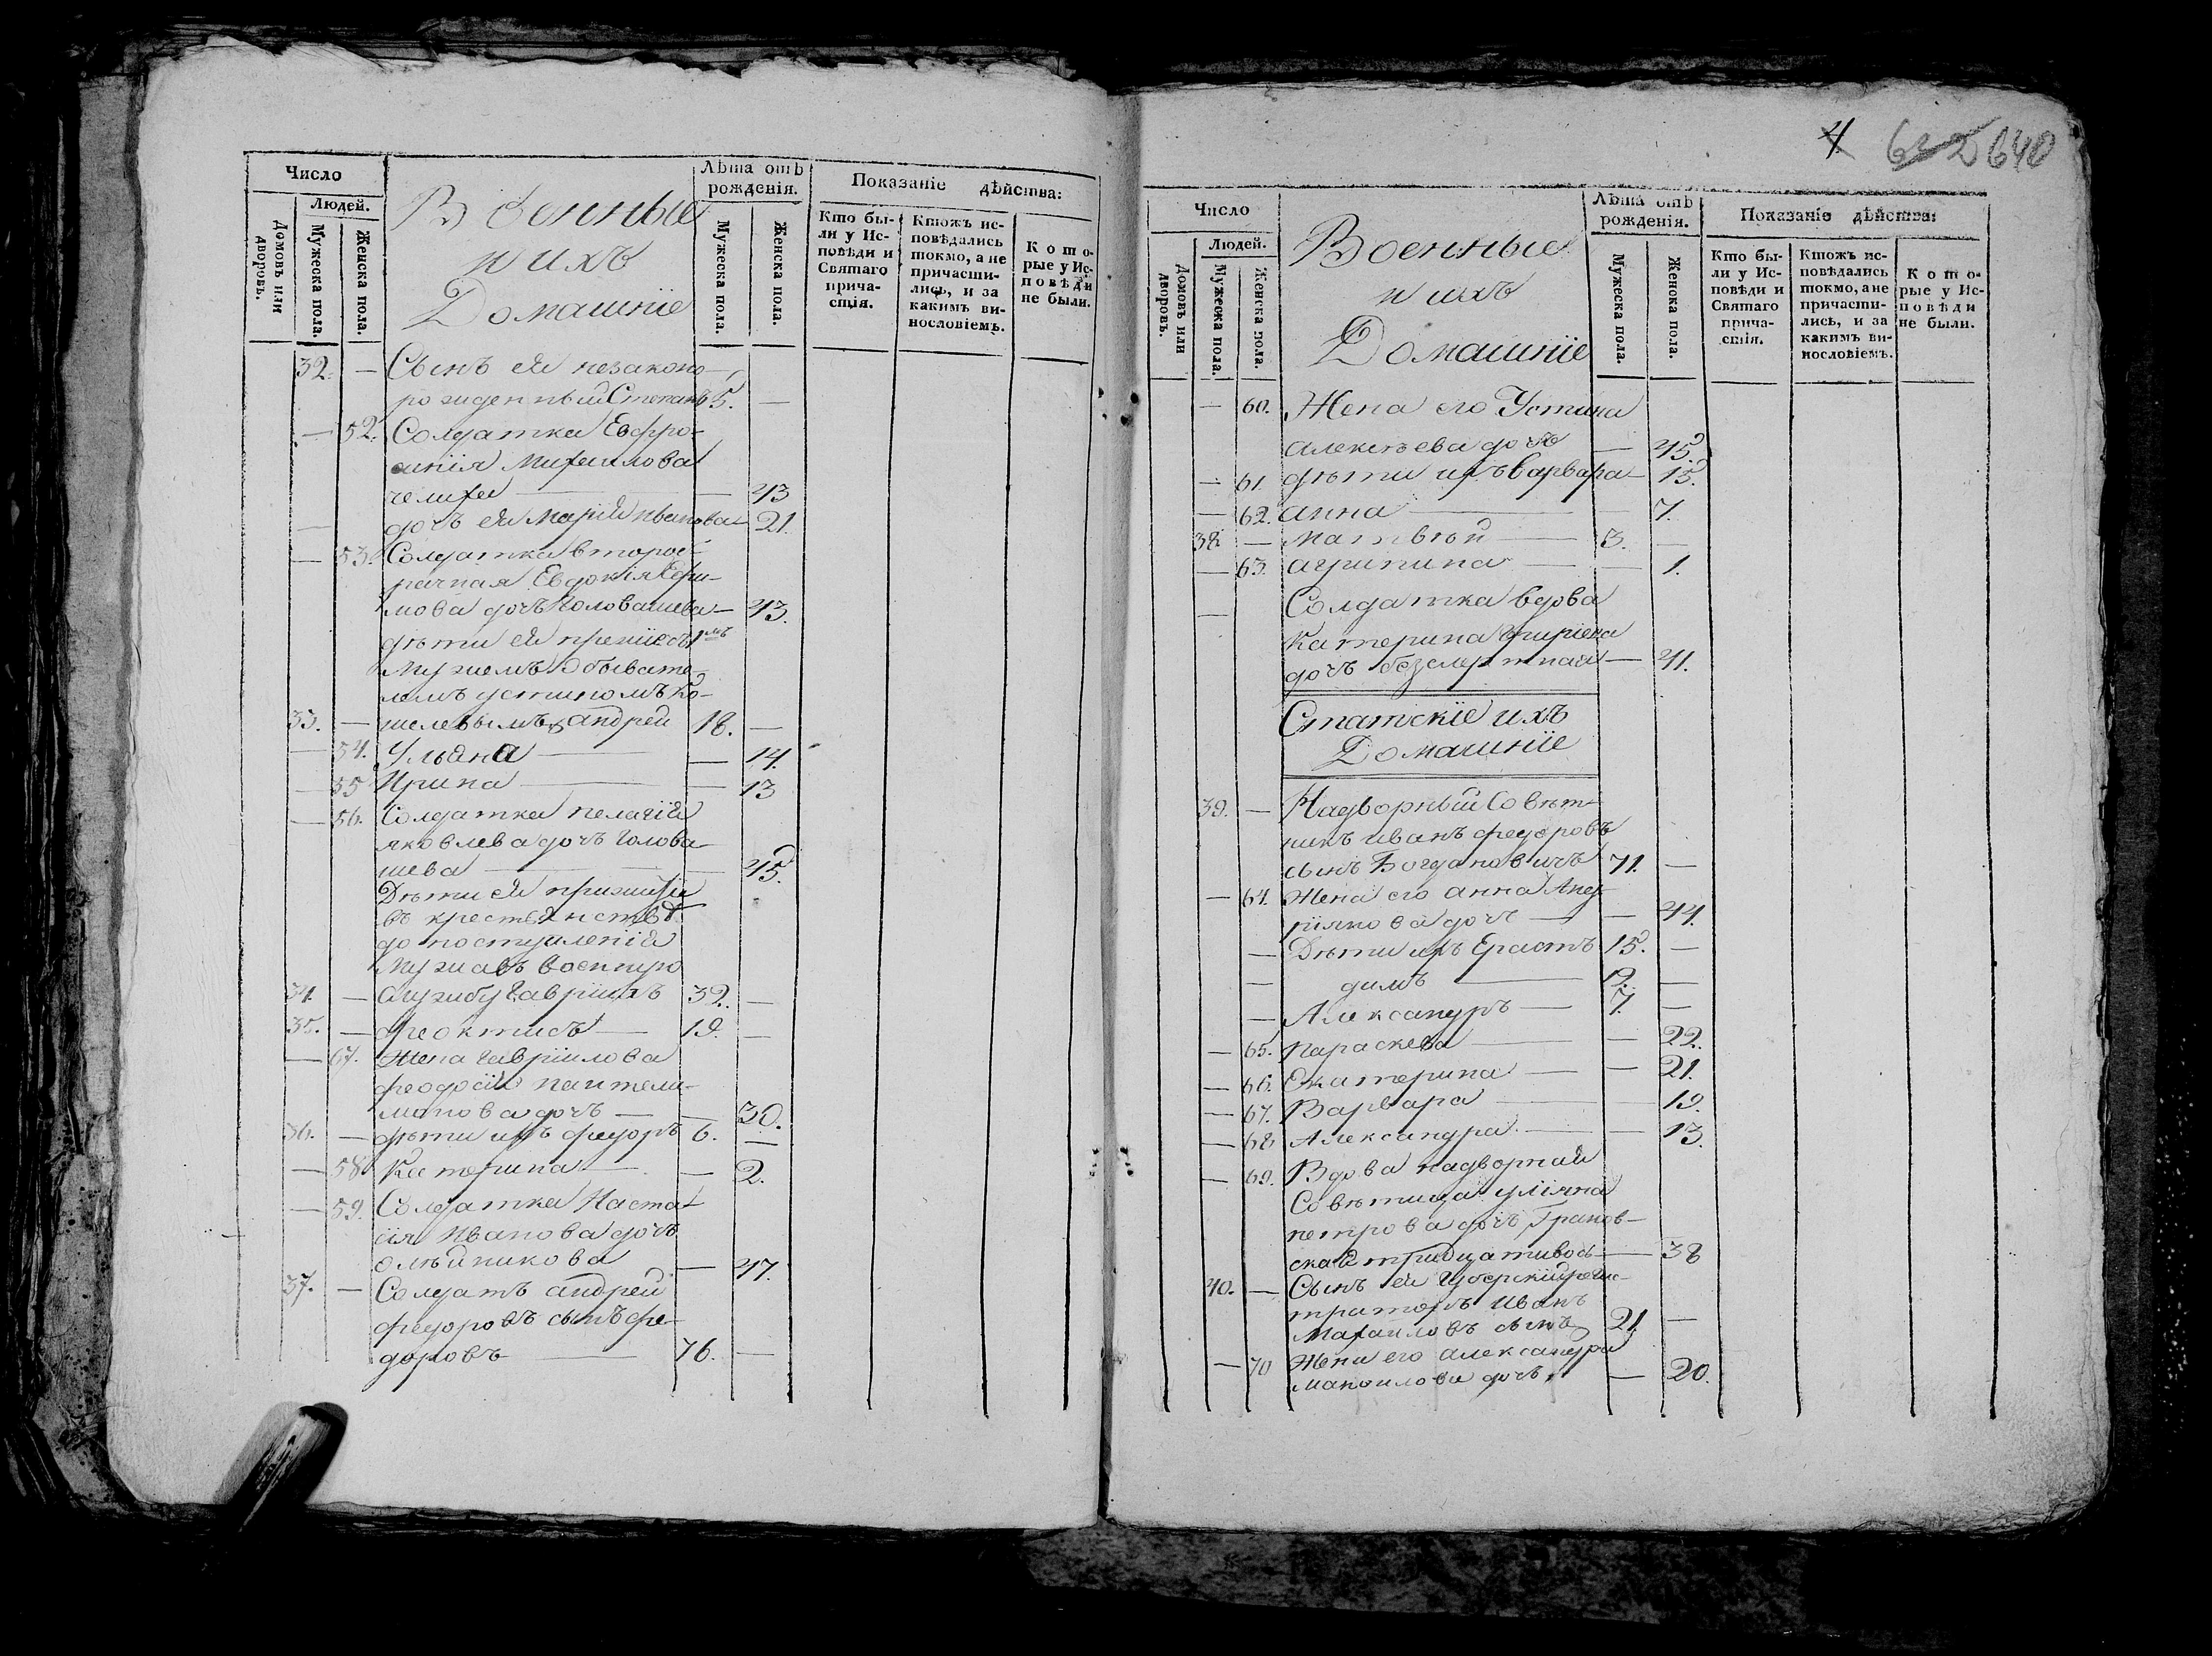 Число
Людей.
Домовъ или дворовъ.
Мужеска пола.
Женска пола.
Военные
и ихъ
Домашніе
Лѣта отъ рожденія.
Мужеска пола.
Женска пола.
Показаніе дѣйства:
Кто бы-
ли у Ис-
повѣди и
Святаго
прича-
стія.
Ктожъ ис-
повѣдались
токмо, а не
причасти-
лись, и за
какимъ ви-
нословіемъ.
Кото-
рые у Ис-
повѣди
не были.
32. — Сынъ ея незаконо-
рожденный Степанъ 5. —
— 52. Солдатка Евфро-
синія Михаилова
— 43
— дочь ея Марія Иванова 21.
— 53. Солдатка второб-
рачная Евдокія Ефи-
мова дочь Головашева — 43.
дѣти ея прежнего 1мъ
Мужемъ Обывате-
лемъ Устиномъ Ко-
шелевымъ Андрей
33. — 18. —
— 54. Ульяна — — 14.
— 55 Ирина — — 13
— 56. Солдатка Пелагія
Яковлева дочь Голова-
шева — — 45.
Дѣти ея прижитыя
въ крестьянствѣ
до поступленія
Мужа въ военную
34. — Службу Гавріилъ 32. —
35. — Феоктистъ — 19. —
— 67. Жена Гавріилова
Феодосія Пантели-
монова дочь — — 30.
36. — дѣти ихъ Федоръ 6. —
— 58. Катерина — — 2.
— 59. Солдатка Наста-
сія Иванова дочь
Олѣйникова — 47.
37. — Солдатъ Андрей
Федоровъ сынъ Фе-
доровъ — 76. —
4. 632 640
Число
Людей.
Домовъ или дворовъ.
Мужеска пола.
Женска пола.
Военные
и ихъ
Домашніе
Лѣта отъ рожденія.
Мужеска пола.
Женска пола.
Показаніе дѣйства:
Кто бы-
ли у Ис-
повѣди и
Святаго
прича-
стія.
Ктожъ ис-
повѣдались
токмо, а не
причасти-
лись, и за
какимъ ви-
нословіемъ.
Кото-
рые у Ис-
повѣди
не были.
— 60. Жена его Устина
Алексѣева дочь — 45.
— 61. дѣти ихъ Варвара — 15.
— 62. Анна — — 7.
38. — Матвѣй — 3. —
— 63. Агрипина — — 1.
— Солдатка вдова
Катерина
дочь безсмертная — 41.
Статскіе ихъ
Домашніе
39. — Надворный Совѣт-
никъ Иванъ Федоровъ
сынъ Богдановичъ 71. —
— 64. Жена его Анна Анд-
ріянова дочь — — 44.
— Дѣти ихъ Ерастъ 15. —
— димъ — 12. —
— Александръ — 7. —
— 65. Параскева — — 22.
— 66. Екатерина — — 21.
— 67. Варвара — — 19.
— 68. Александра — — 13.
— 69. Вдова надворная
Совѣтница Уліяна
Петрова дочь Гранов-
ская тридцативось — 38
40. — Сынъ ея Губерскій Регис-
траторъ Иванъ
Михаиловъ сынъ 21. —
— 70 Жена его Александра
дочь — 20.